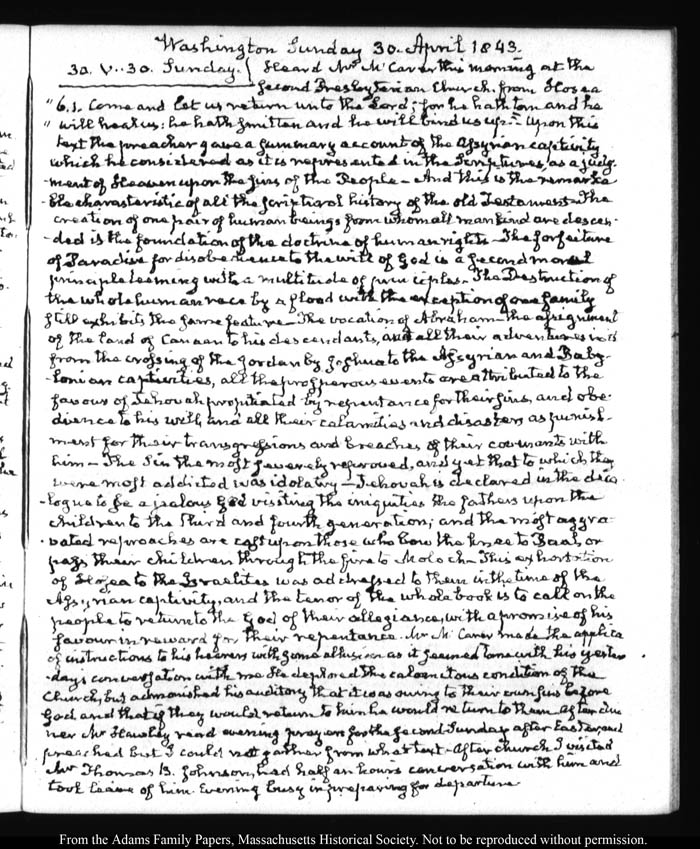 Washington Sunday 30. April 1843.
30. V..30. Sunday. { Heard Mr McCaver this morning at the
Second Presbyterian Church, from Hosea
" 6.1. Come and let us return unto the Lord; for he hath torn and he
" will heal us: he hath smitten and he will bind us up." Upon this
text the preacher gave a summary account of the Assyrian captivity
which he considered as it is represented in the Scriptures, as a judg-
-ment of Heaven upon the sins of the People — And this is the remarka
-ble characteristic of all the scriptural history of the old Testament — The
creation of one pair of human beings from whom all mankind are descen-
-ded is the foundation of the doctrine of human rights — The forfeiture
of Paradise for disobedience to the will of God is a second moral
principle teeming with a multitude of principles — The Destruction of
the whole human race by a flood with the exception of one family
still exhibits the same feature — The vocation of Abraham — the assignment
of the land of Canaan to his descendants, and all their adventures
from the crossing of the Jordan by Joshua to the Assyrian and Baby-
-lonian captivities, all the prosperous events are attributed to the
favour of Jehovah propitiated by repentance for their sins, and obe-
dience to his will, and all their calamities and disasters as punish-
ment for their transgressions and breaches of their covenants with
him — The Sin the most severely reproved, and yet that to which they
were most addicted was idolatry — Jehovah is declared in the deca
-logue to be a jealous God visiting the iniquities the fathers upon the
children to the third and fourth generation; and the most aggra-
-vated reproaches are cast upon those who bow the knee to Baal, or
pass their children through the fire to Moloch — This exhortation
of Hosea to the Israelites was addressed to them in the time of the
Assyrian captivity, and the tenor of the whole book is to call on the
people to return to the God of their allegiance, with a promise of his
favour in reward for their repentance. Mr McCaver made the applica
of instructions to his hearers with some allusion as it seemed to me with his yester
-days conversation with me He deplored the calamitous condition of the
Church, but admonished his auditory that it was owing to their own sins before
God and that if they would return to him he would return to them After din
ner Mr Hawley read evening prayer for the second Sunday after Easter, and
preached but I could not gather from what text — After church I visited
Mr Thomas B. Johnson, had half an hours conversation with him and
took leave of him. Evening busy in preparing for departure
From the Adams Family Papers, Massachusetts Historical Society. Not to be reproduced without permission.